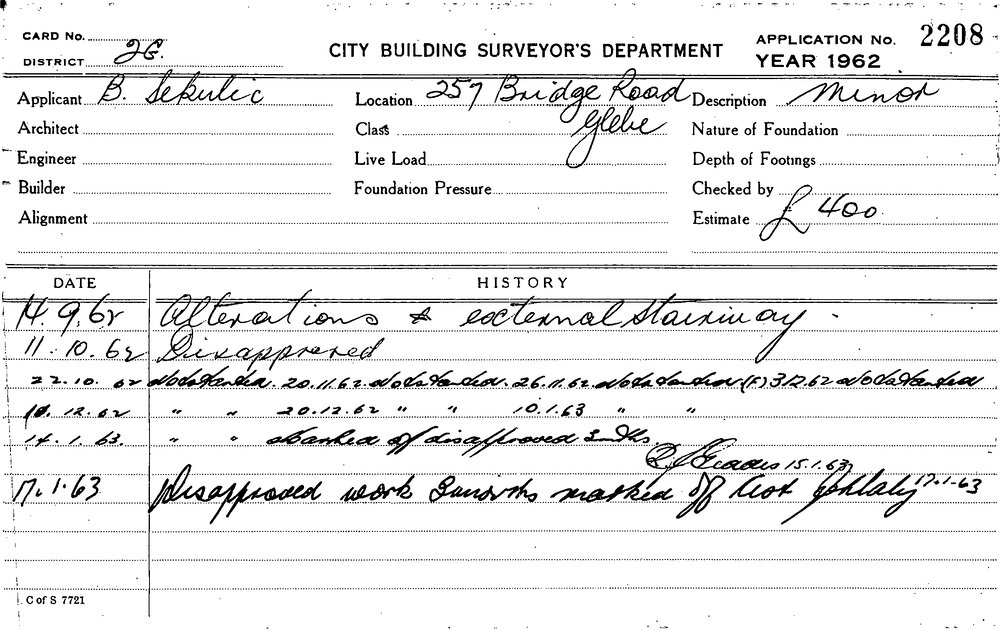 CARD No.
DISTRICT 2G.
CITY BUILDING SURVEYOR'S DEPARTMENT
APPLICATION No. 2208
YEAR 1962
Applicant B. Sekulic
Location 257 Bridge Road
Glebe
Description Minor
Architect
Class
Nature of Foundation
Engineer
Live Load
Depth of Footings
Builder
Foundation Pressure
Checked by
Alignment
Estimate £ 400
DATE HISTORY
14.9.62 Alterations & external stairway.
11.10.62 Disapproved
22.10.62 Not started. 20.11.62 Not started. 26.11.62 Not started (F) 3.12.62 Not started
10.12.62 " " 20.12.62 " " 10.1.63 " "
14.1.63. " " Marked off disapproved 3 mths.
15.1.63
17.1.63 Disapproved work 3 months marked off 17.1.63
C of S 7721